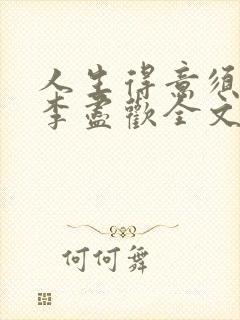 人生得意须
李尽歡全文
何何舞